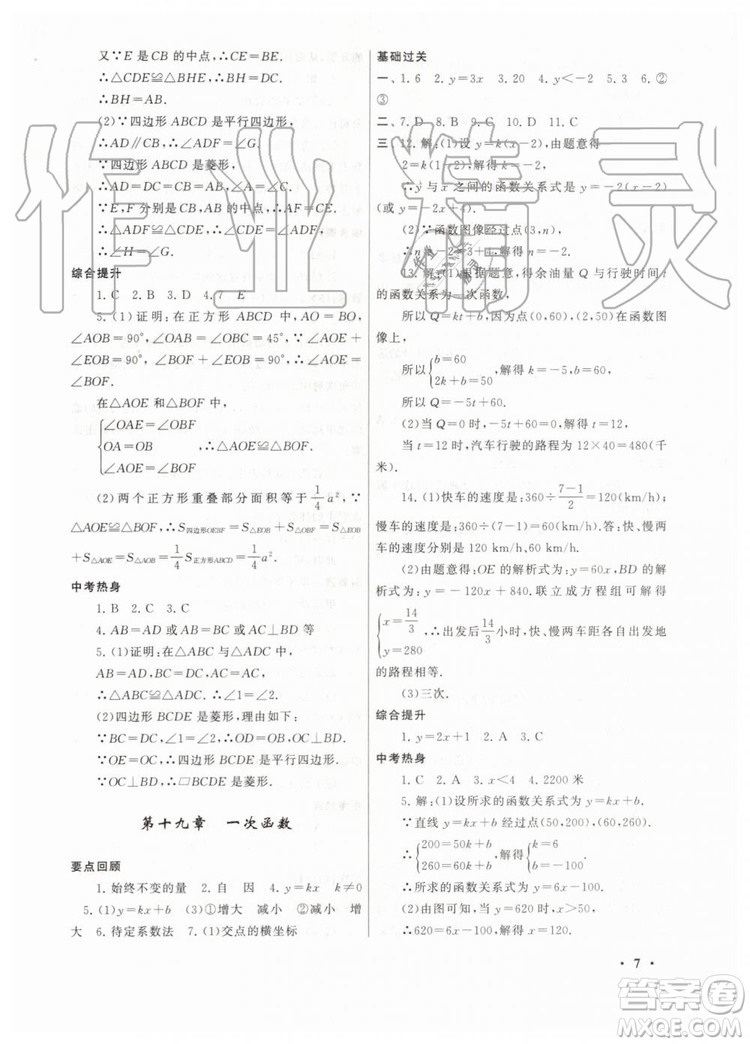 又∵E是CB的中点,∴CE=BE.
∴△CDE≌△BHE,∴BH=DC.
∴BH=AB.
(2)∵四边形ABCD是平行四边形,
∴AD∥CB,∴∠ADF=∠G.
∵四边形ABCD是菱形,
∴AD=DC=CB=AB,∠A=∠C.
∵E,F分别是CB,AB的中点,
∴∠H=∠G.
综合提升
1.C 2.B 3.D 4.7 E
5.(1)证明:在正方形ABCD中,AO=BO,
∠AOB=90°,∠OAB=∠OBC=45°,∵∠AOE+
∠EOB=90°,∠BOF+∠EOB=90°,∴∠AOE
=∠BOF.
在△AOE和△BOF中,
{∠OAE=∠OBF
OA=OB ∴△AOE≌△BOF.
∠AOE=∠BOF
(2)两个正方形重叠部分面积等于1/4a²,∵
△AOE≌△BOF,∴S四边形OEBF=S△EOB+S△BOF=S△EOB
+S△AOE=S△AOB=1/4S正方形ABCD=1/4a².
中考热身
1.B 2.C 3.C
4.AB=AD或AB=BC或AC⊥BD等
5.(1)证明:在△ABC和△ADC中,
AB=AD,BC=DC,AC=AC,
∴△ABC≌△ADC,∴∠1=∠2.
(2)四边形BCDE是菱形,理由如下:
∵BC=DC,∠1=∠2,∴OB=OD,OC⊥BD.
∵OE=OC,∴四边形BCDE是平行四边形.
∵OC⊥BD,∴▱BCDE是菱形.
第十九章 一次函数
要点回顾
1.始终不变的量 2.自 因 4.y=kx k≠0
5.(1)y=kx+b (3)①增大 减小 ②减小 增
大 6.待定系数法 7.(1)交点的横坐标
基础过关
一、1.6 2.y=3x 3.20 4.y<-2 5.3 6.②
③
二、7.D 8.B 9.C 10.D 11.C
三、12.解:(1)设y=k(x-2),由题意得
2=k(1-2),∴解得k=-2.
∴y与x之间的函数关系式是y=-2(x-2)
(或y=-2x+4).
(2)∵函数图像经过点(3,n),
∴n=-2×(3-2)=-2.
13.解:(1)根据题意,得余油量Q与行驶时间t
的函数关系为一次函数,
所以Q=kt+b,因为点(0,60),(2,50)在函数图
像上,
所以{b=60
2k+b=50,解得k=-5,b=60.
所以Q=-5t+60.
(2)当Q=0时,-5t+60=0,解得t=12.
当t=12时,汽车行驶的路程12×40=480(千
米).
14.(1)快车的速度是:360÷(7-1)/2=120(km/h),
慢车的速度是:360÷(7-1)=60(km/h).答:快、慢
两车的速度分别是120 km/h,60 km/h.
(2)由题意得:OE的解析式为y=60x,BD的
解析式为y=-120x+840.联立成方程组可解得
{x=14/3
y=280 ∴出发后14/3小时,快、慢两车距各自出发地
的路程相等.
(3)三次.
综合提升
1.y=2x+1 2.A 3.C
中考热身
1.C 2.A 3.x<4 4.2200米
5.解:(1)设所求的函数关系式为y=kx+b,
∵直线y=kx+b过点(50,200),(60,260),
∴{200=50k+b
260=60k+b,解得{k=6
b=-100.
∴所求的函数关系式为y=6x-100.
(2)由图可知,当y=620时,x>50,
∴620=6x-100,解得x=120.
·7·
作业精灵
答案卷